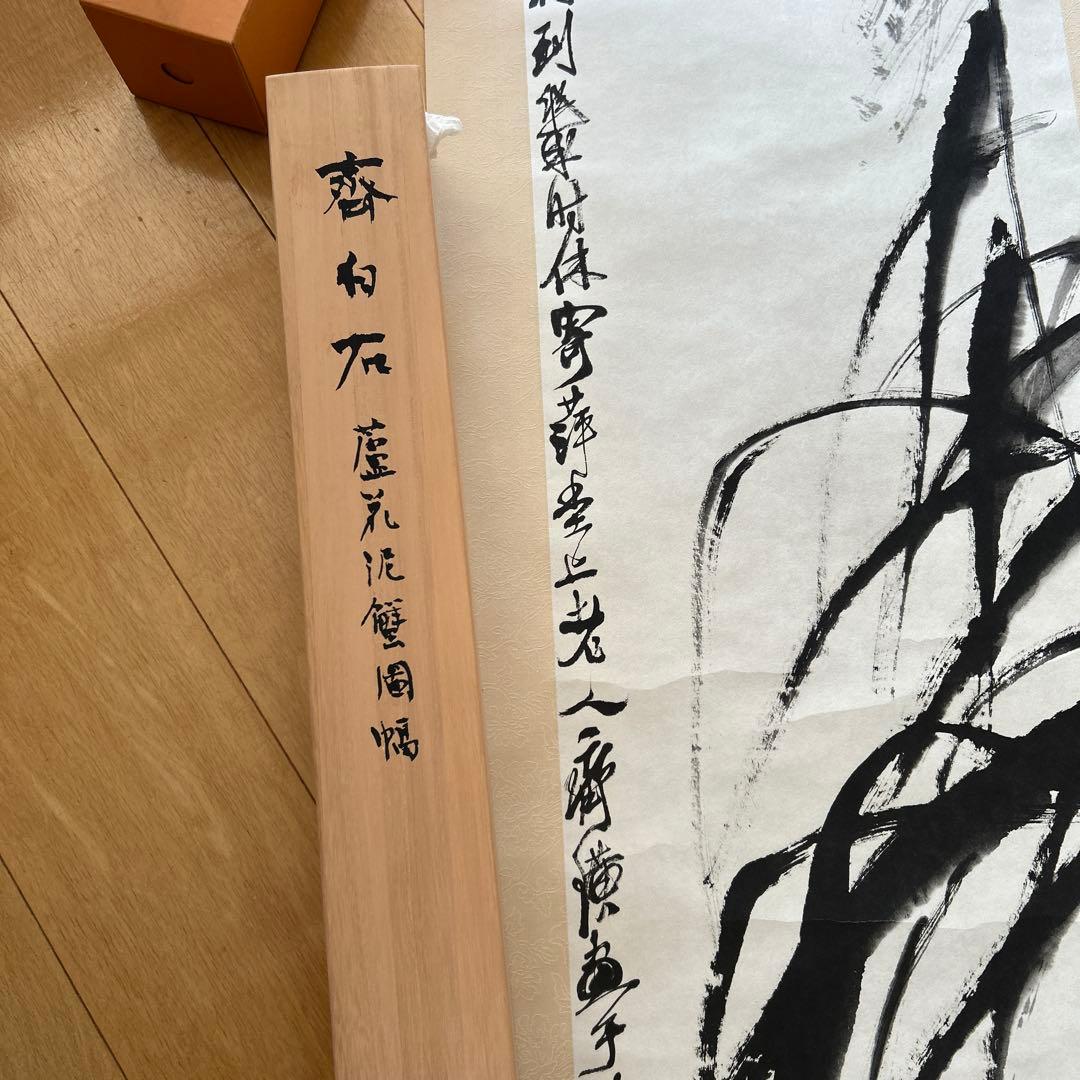 齊白石 蘆花泥蟹圖幅
到乘時休寄萍堂上老人齊璜畫于